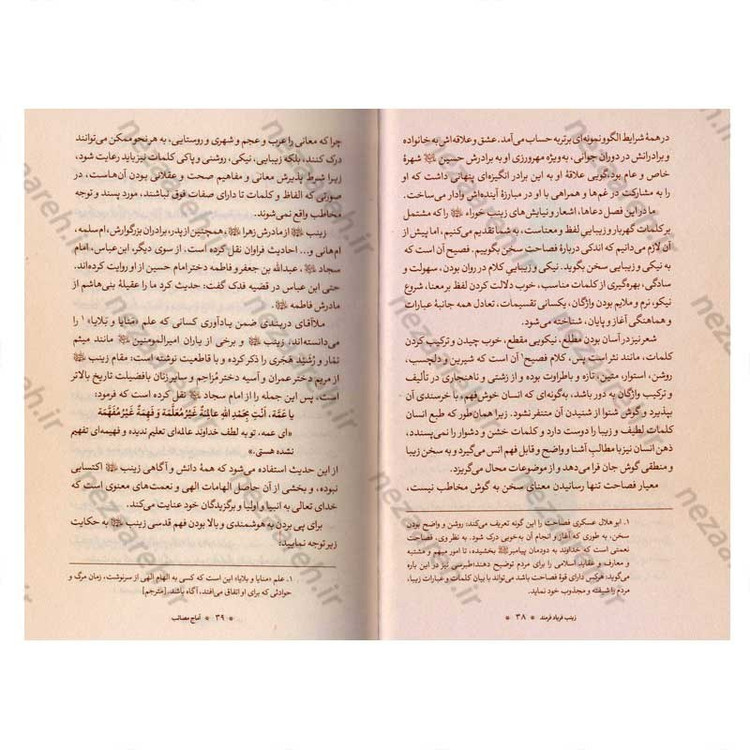 در همهٔ شرایط الگو و نمونه‌ای برتر به حساب می‌آمد. عشق و علاقه‌اش به خانواده
و برادرانش در دوران جوانی، به ویژه مهرورزی او به برادرش حسین شهرهٔ
خاص و عام بود، گویی علاقهٔ او به این برادر انگیزه‌ای پنهانی داشت که او
را به مشارکت در غم‌ها و همراهی با او در مبارزهٔ آینده‌اش وادار می‌ساخت.
ما در این فصل دعاها، اشعار و نیایش‌های زینب حوراء را که مشتمل
بر کلمات گهربار و زیبایی لفظ و معناست، به شما تقدیم می‌کنیم، اما پیش از
آن لازم می‌دانیم که اندکی دربارهٔ فصاحت سخن بگوییم. فصیح آن است که
به نیکی و زیبایی سخن بگوید. نیکی و زیبایی کلام در روان بودن، سهولت و
سادگی، بهره‌گیری از کلمات مناسب، خوب دلالت کردن لفظ بر معنا، شروع
نیکو، نرم و ملایم بودن واژگان، یکسانی تقسیمات، تعادل همه جانبهٔ عبارات
و هماهنگی آغاز و پایان، شناخته می‌شود.
شعر نیز در آسان بودن مطلع، نیکویی مقطع، خوب چیدن و ترکیب کردن
کلمات، مانند نثر است پس کلام فصیح۱ آن است که شیرین و دلچسب،
روشن، استوار، متین، تازه و باطراوت بوده و از زشتی و ناهنجاری در تألیف
و ترکیب واژگان به دور باشد، به‌گونه‌ای که انسان خوش‌فهم، با خرسندی آن
بپذیرد و گوش شنوا از شنیدن آن متنفر نشود. زیرا همان‌طور که طبع انسان
کلمات لطیف و زیبا را دوست دارد و کلمات خشن و دشوار را نمی‌پسندد،
ذهن انسان نیز با مطالب آشنا و واضح و قابل فهم انس می‌گیرد و به سخن زیبا
و منطقی گوش جان فرا می‌دهد و از موضوعات محال می‌گریزد.
معیار فصاحت تنها رسانیدن معنای سخن به گوش مخاطب نیست،
۱. ابو هلال عسکری فصاحت را این گونه تعریف می‌کند: روشن و واضح بودن
سخن، به طوری که آغاز و انجام آن به‌خوبی درک شود. به نظر وی، فصاحت
نعمتی است که خداوند به دودمان پیامبر بخشیده، تا امور مبهم و مشتبه
و معارف و عقاید اسلامی را برای مردم توضیح دهند؛ طبرسی نیز در این باره
می‌گوید: هرکس دارای قوهٔ فصاحت باشد می‌تواند با بیان کلمات و عبارات زیبا،
مردم را شیفته و مجذوب خود نماید.
زینب فریاد فرمند * ۳۸ *
چرا که معانی را عرب و عجم و شهری و روستایی، به هر نحو ممکن می‌توانند
درک کنند، بلکه زیبایی، نیکی، روشنی و پاکی کلمات نیز باید رعایت شود،
زیرا شرط پذیرش معانی و مفاهیم صحت و عقلانی بودن آن‌هاست، در
صورتی که الفاظ و کلمات تا دارای صفات فوق نباشند، مورد پسند و توجه
مخاطب واقع نمی‌شوند.
زینب از مادرش زهرا همچنین از پدر، برادران بزرگوارش، ام سلمه،
ام‌هانی و... احادیث فراوان نقل کرده است. از سوی دیگر، ابن‌عباس، امام
سجاد عبدالله بن جعفر و فاطمه دختر امام حسین از او روایت کرده‌اند.
حتی ابن عباس در قضیه فدک گفت: حدیث کرد ما را عقیلهٔ بنی‌هاشم از
مادرش فاطمه
ملاآقای دربندی ضمن یادآوری کسانی که علم «منایا و بلایا» ۱ را
می‌دانسته‌اند، زینب و برخی از یاران امیرالمومنین مانند میثم
تمّار و رُشَید هَجَری را ذکر کرده و با قاطعیت نوشته است: مقام زینب
از مریم دختر عمران و آسیه دختر مُزاحِم و سایر زنان بافضیلت تاریخ بالاتر
است. پس این جمله را از امام سجاد نقل کرده است که فرمود:
یا عَمَّة، اَنْتِ بِحَمْدِ اللهِ عالِمَةٌ غَیْرُ مُعَلَّمَة وَ فَهِمَةٌ غَیْرُ مُفَهَّمَة
«ای عمه، تو به لطف خداوند عالمه‌ای تعلیم ندیده و فهیمه‌ای تفهیم
نشده هستی.»
از این حدیث استفاده می‌شود که همهٔ دانش و آگاهی زینب اکتسابی
نبوده، و بخشی از آن حاصل الهامات الهی و نعمت‌های معنوی است که
خدای تعالی به انبیا و اولیا و برگزیدگان خود عنایت می‌کند.
برای پی بردن به هوشمندی و بالا بودن فهم قدسی زینب به حکایت
زیر توجه نمایید:
۱. علم «منایا و بلایا» این است که کسی به الهام الهی از سرنوشت، زمان مرگ و
حوادثی که برای او اتفاق می‌افتد، آگاه باشد. [مترجم]
* ۳۹ * آماج مصائب
nezaareh.ir